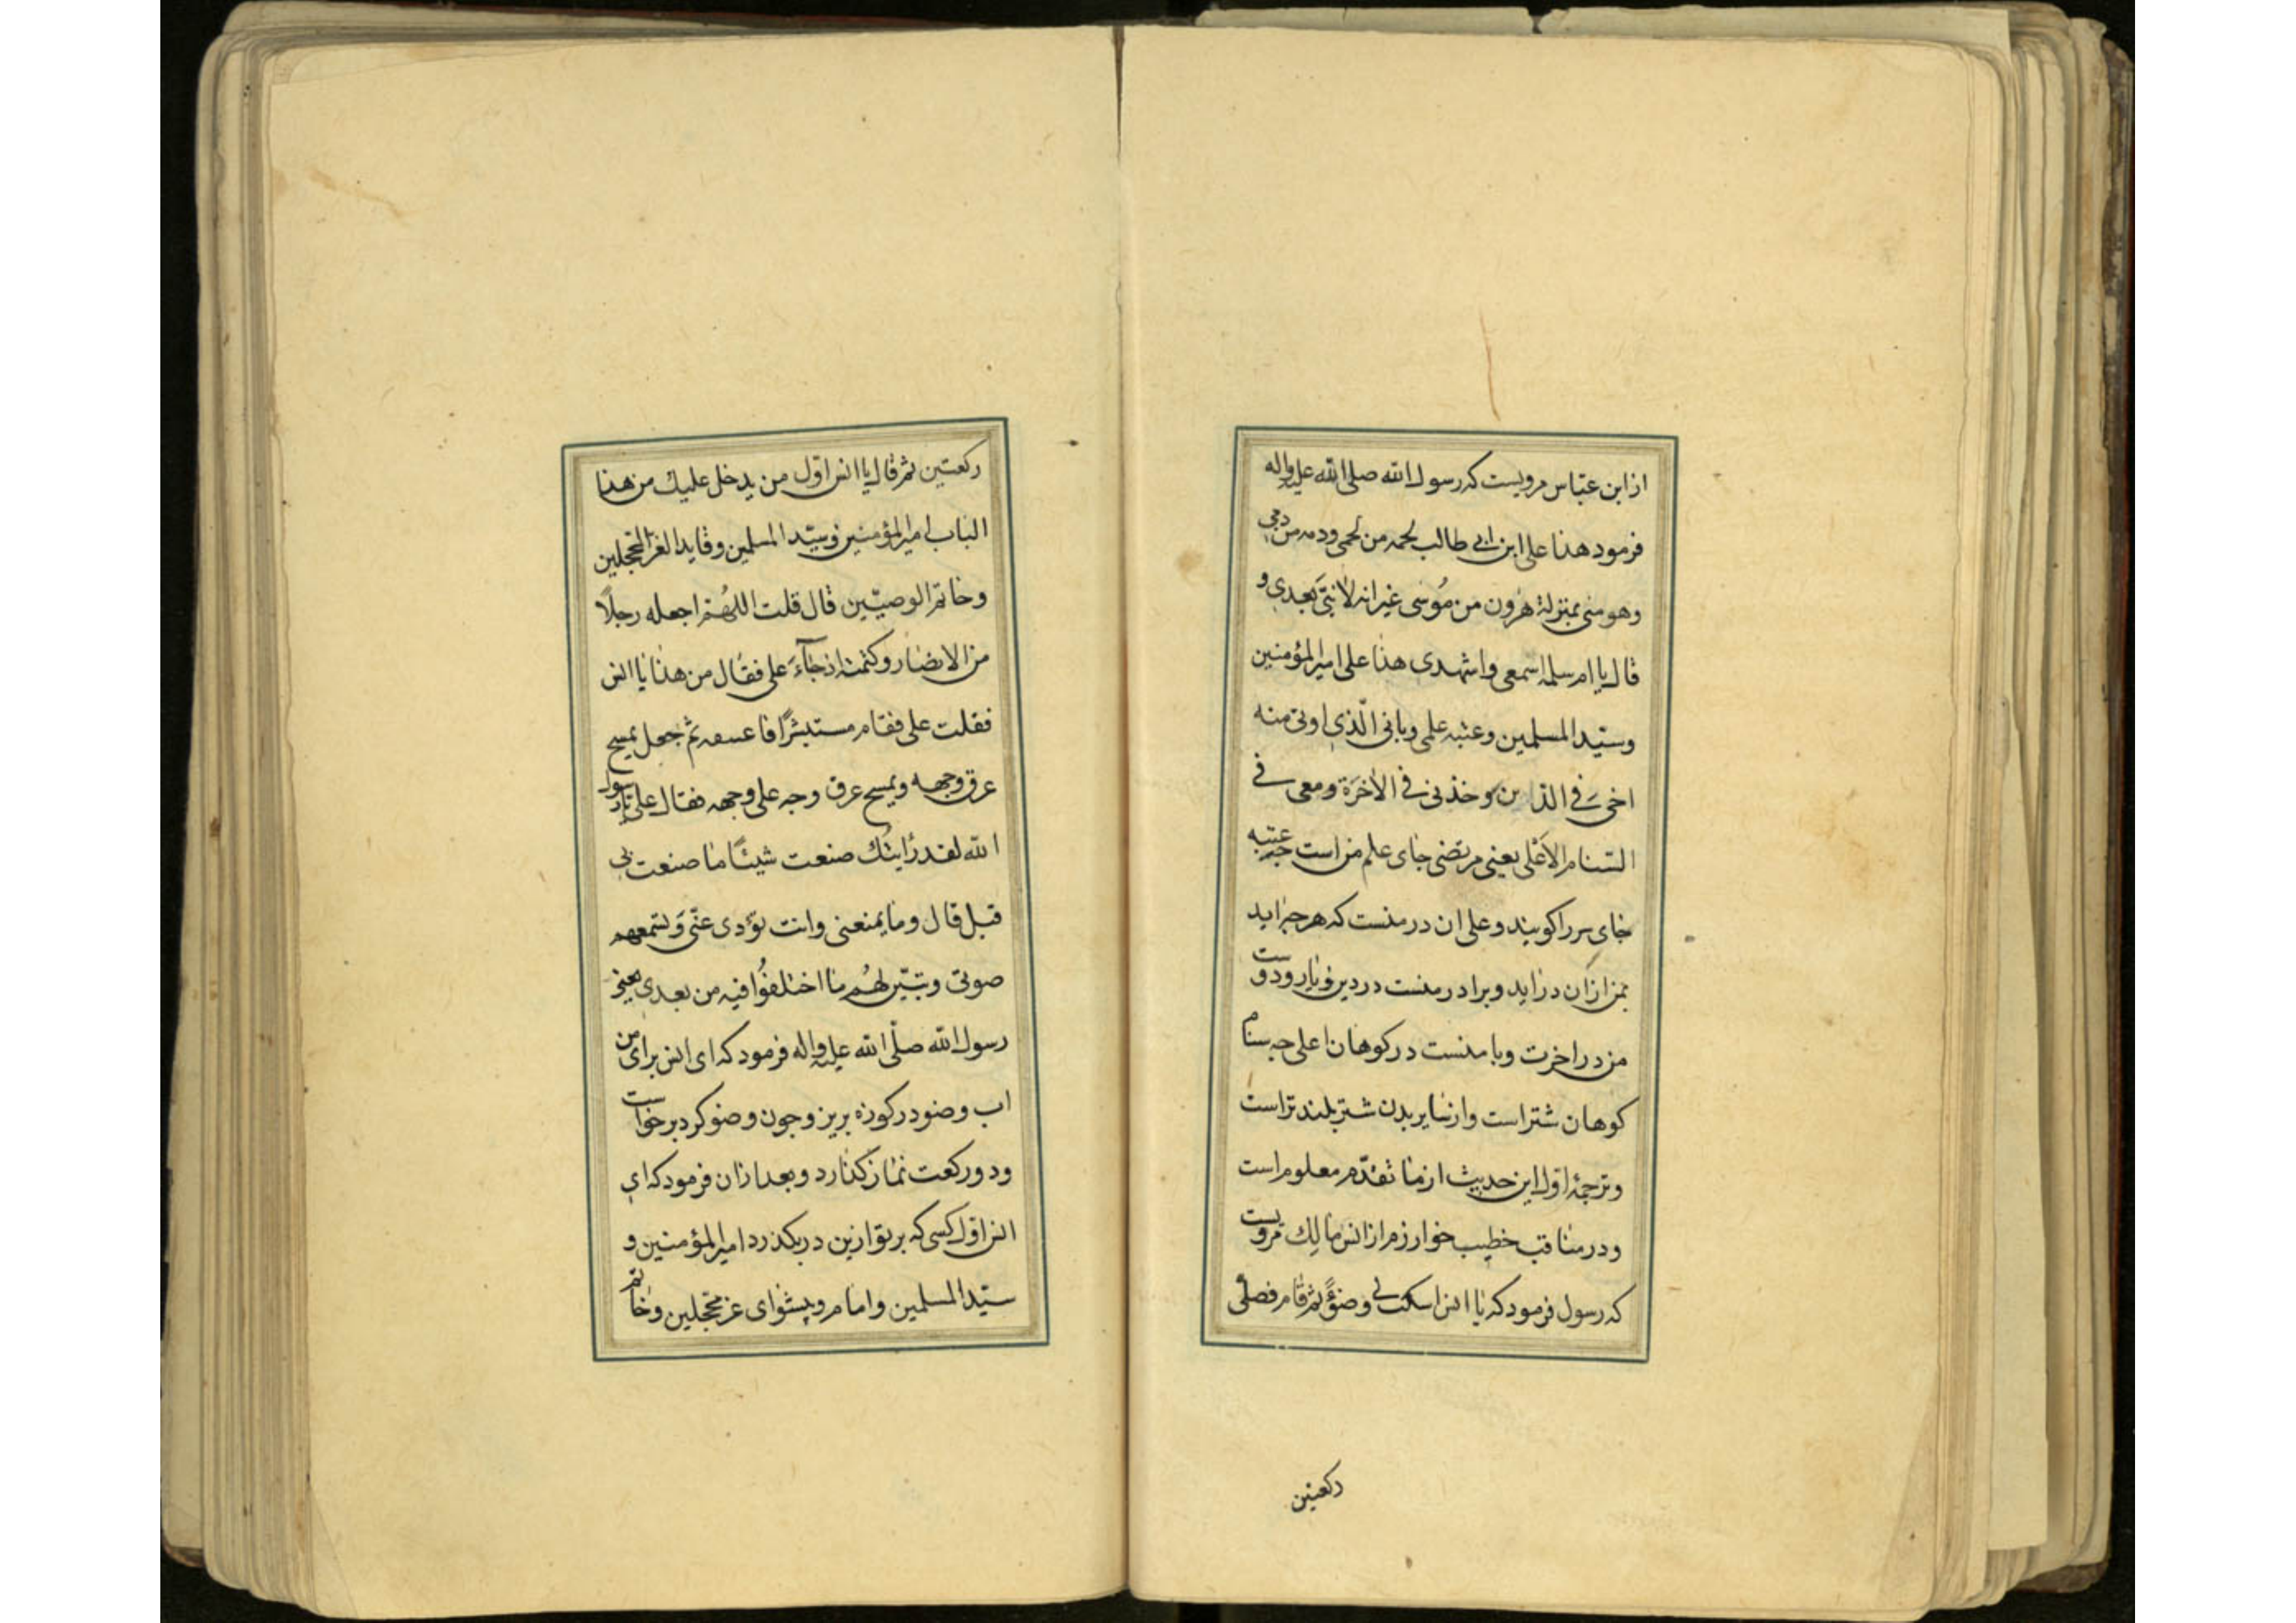 از ابن عبّاس مرویست که رسول الله صلی الله علیه واله
فرمود هذا علی ابن ابی طالب لحمه من لحمی ودمه من دمی
وهو منی بمنزلة هٰرون من مُوسی غیر انه لا نبیّ بعدی و
قال یا ام سلمه اسمعی واشهدی هذا علی امیر المؤمنین
وسیّد المسلمین وعتبه علمی وبابی الّذی اوتی منه
اخی فی الدین وخذنی فی الاٰخرَة ومعی فی
السنام الاَعْلی یعنی مرتضی جای علم من است جه عتبه
جای سر را کویند وعلی ان در منست که هر جه اید
بمن ازان در اید وبرادر منست در دین ویار ودوست
من در اخرت وبا منست در کوهان اعلی جه سنام
کوهان شتر است واز سایر بدن شتر بلند تر است
وترجمهٔ اول این حدیث از ما تقدّم معلوم است
ودر مناقب خطیب خوارزم از انس مالك مرویست
که رسول فرمود که یا انس اسکب لی وضؤً ثم قام فصلّی
رکعتین
رکعتین ثم قال یا انس اوّل من یدخل علیك من هذا
الباب امیر المؤمنین وسیّد المسلمین وقاید الغر المحجلین
وخاتم الوصیّین قال قلت اللهُم اجعله رجلاً
من الانصار وکتمته اذ جآءَ علی فقال من هذا یا انس
فقلت علی فقام مستبشرًا فاعتنقه ثم جعل یمسح
عرق وجهه ویمسح عرق وجه علی وجهه فقال علی یا رسول
الله لقد رایتُك صنعت شیئًا ما صنعت بی
قبل قال وما یمنعنی وانت تؤدی عنّی وَتسمعهم
صوتی وتبیّن لهُم ما اختلفُوا فیه من بعدی یعنی
رسول الله صلّی الله علیه واله فرمود که ای انس برای من
اب وضو در کوزه بریز وجون وضو کرد برخواست
ودو رکعت نماز کذارد وبعد ازان فرمود که ای
انس اوّل کسی که بر تو ازین در بکذرد امیر المؤمنین و
سیّد المسلمین وامام وپیشوای غر محجلین وخاتم